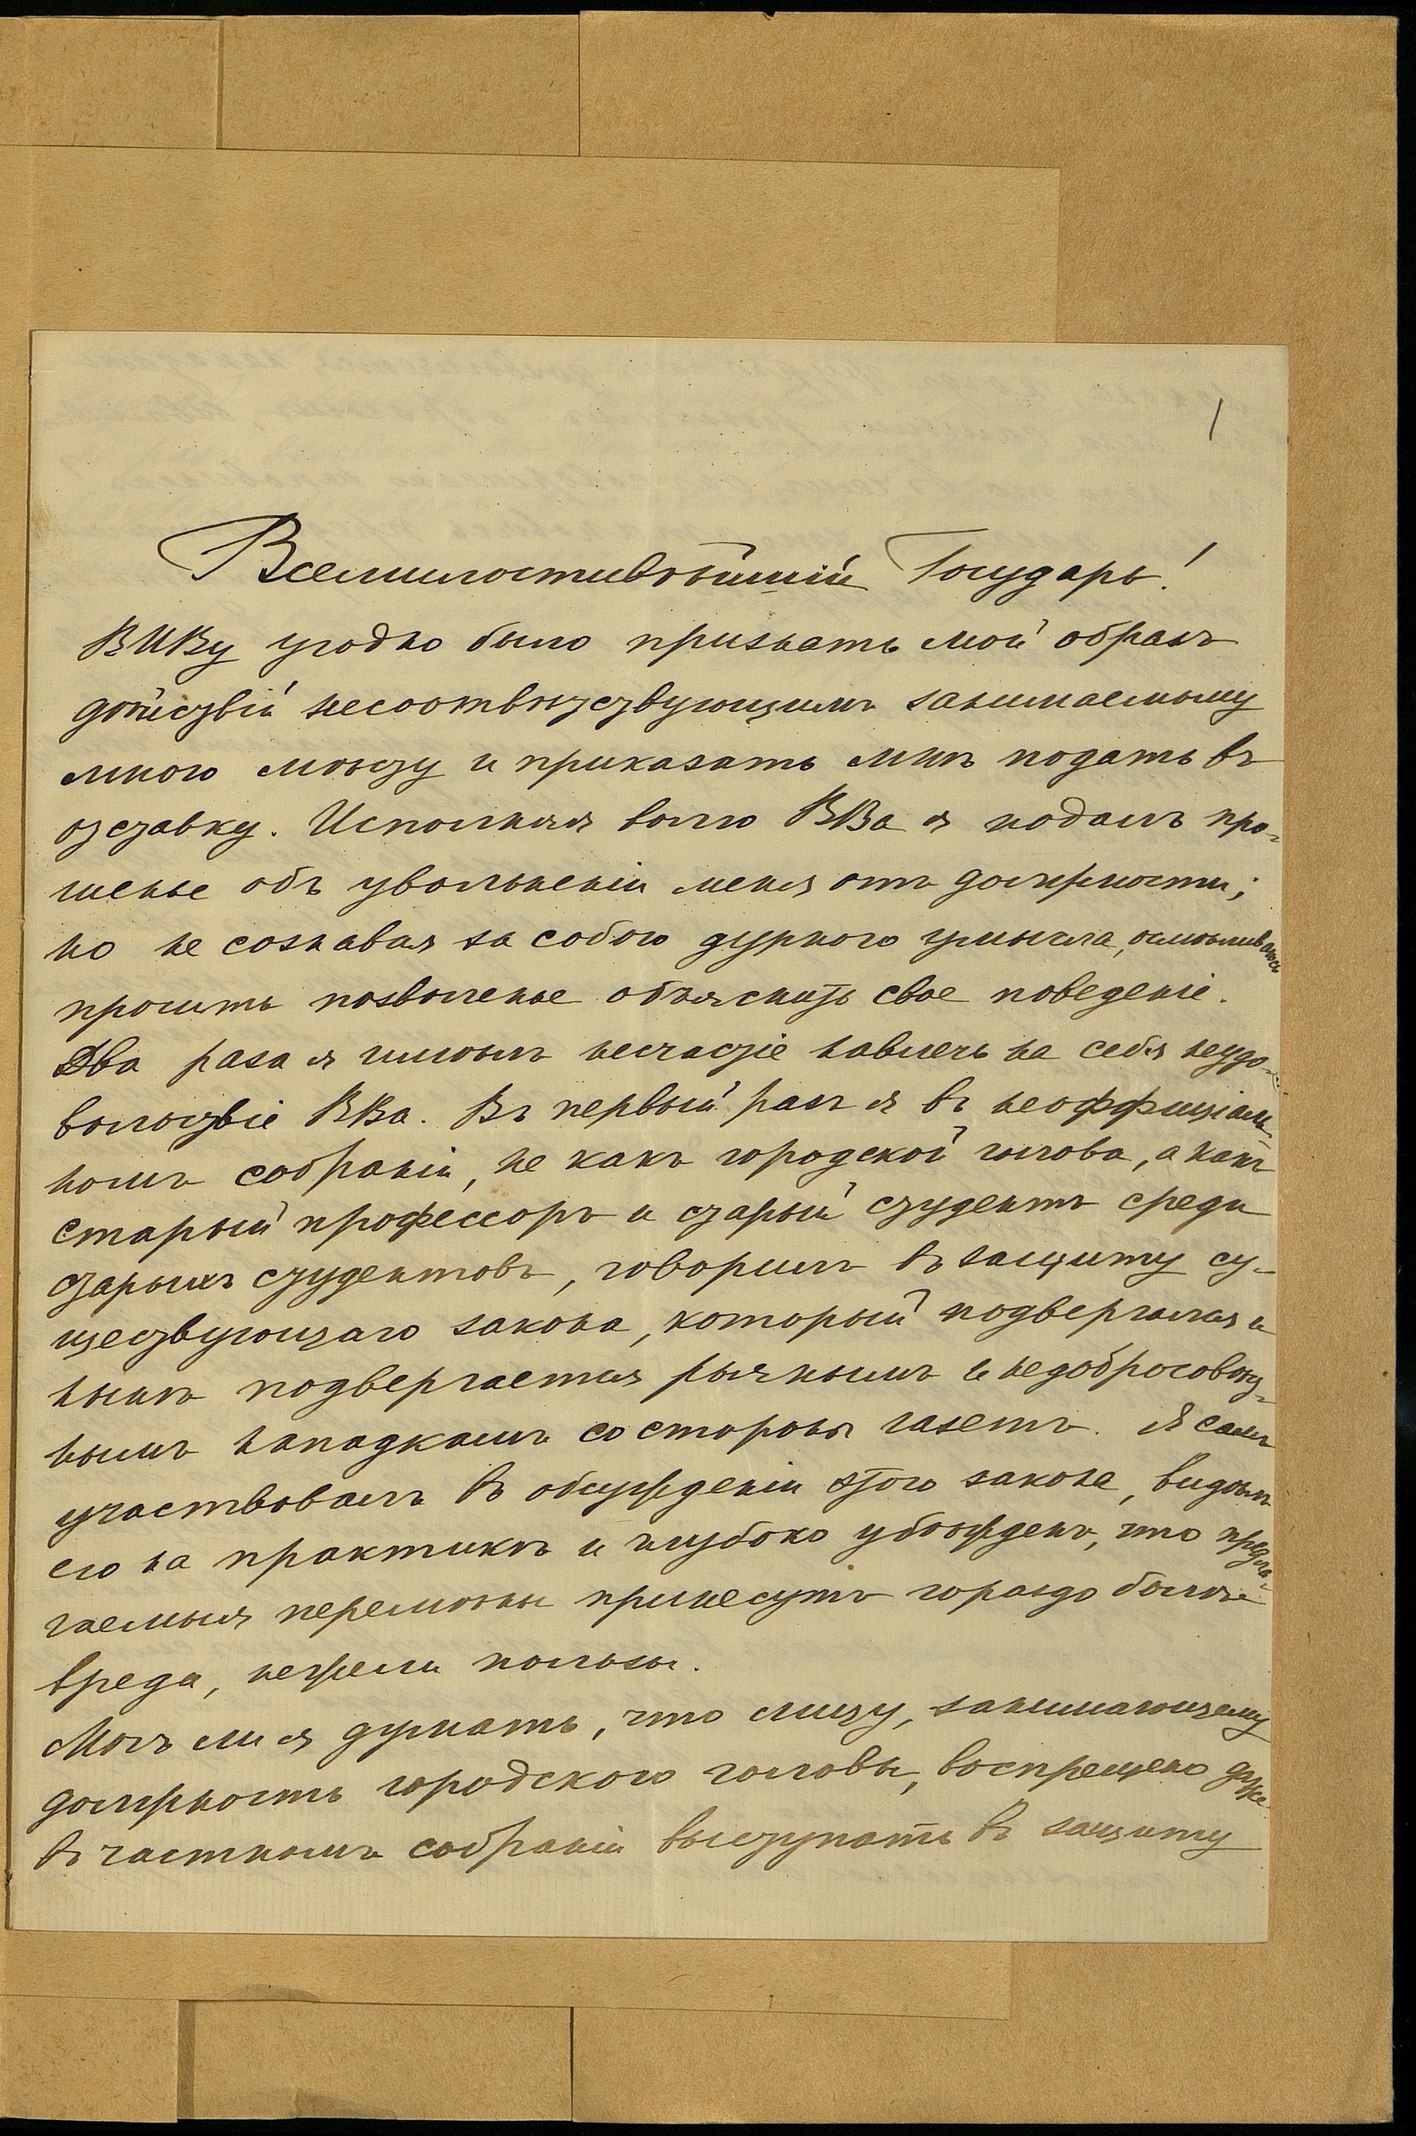 1
Всемилостивѣйшій Государь!
ВИВу угодно было признать мой образъ
дѣйствій несоотвѣтствующимъ занимаемому
мною мѣсту и приказать мнѣ подать въ
отставку. Исполняя волю ВВа я подалъ про-
шенье объ увольненіи меня отъ должности;
но не сознавая за собою дурного умысла, осмѣливаюсь
просить позволенье объяснить свое поведеніе.
Два раза я имѣлъ несчастіе навлечь на себя неудо-
вольствіе ВВа. Въ первый разъ я въ неоффиціаль-
номъ собраніи, не какъ городской голова, а какъ
старый профессоръ и старый студентъ среди
старыхъ студентовъ, говорилъ въ защиту су-
ществующаго закона, который подвергался и
нынѣ подвергается рьянымъ и недобросовѣст-
нымъ нападкамъ со стороны газетъ. Я самъ
участвовалъ въ обсужденіи этого закона, видѣлъ
его на практикѣ и глубоко убѣжденъ, что предла-
гаемыя перемѣны принесутъ гораздо болѣе
вреда, нежели пользы.
Могъ ли я думать, что лицу, занимающему
должность городского головы, воспрещено даже
въ частномъ собраніи выступать въ защиту